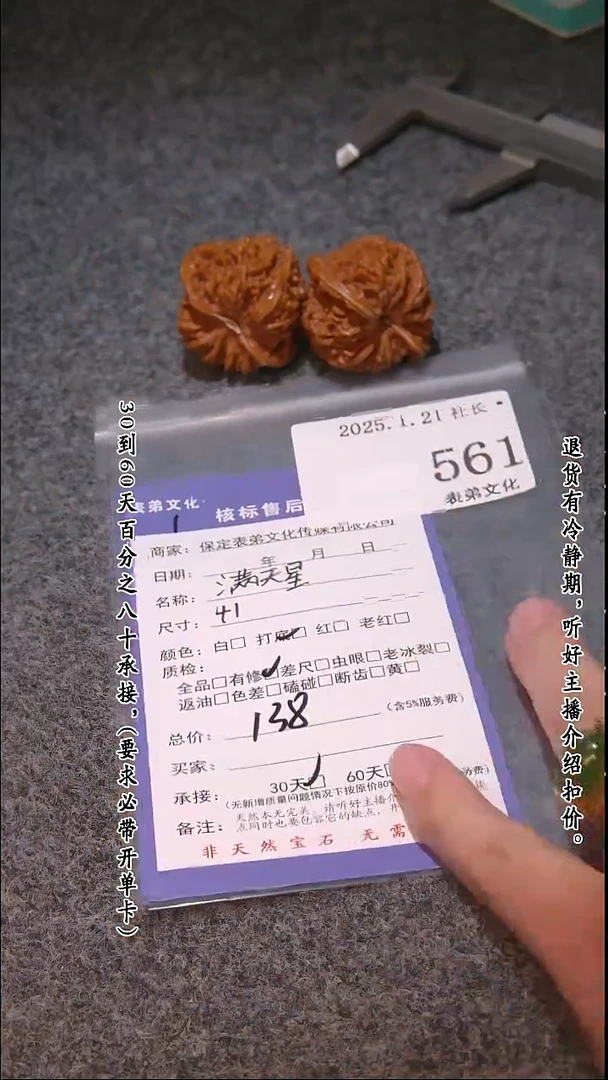 30到60天百分之八十承接,(要求必带开单卡)
退货有冷静期,听好主播介绍扣价。
2025.1.21 社长
561
表弟文化
表弟文化
核标售后
商家:保定表弟文化传媒有限公司
日期: 年 月 日
名称:满天星
尺寸:41
颜色:白□ 打底□ 红□ 老红□
质检:
全品□有修□差尺□虫眼□老冰裂□
返油□色差□磕碰□断齿□黄□
总价:138 (含5%服务费)
买家:
承接:30天□ 60天□
(无新增质量问题情况下按原价80%
备注:天然本无完美,请听好主播
点同时也要包容它的缺点,
非天然宝石 无需